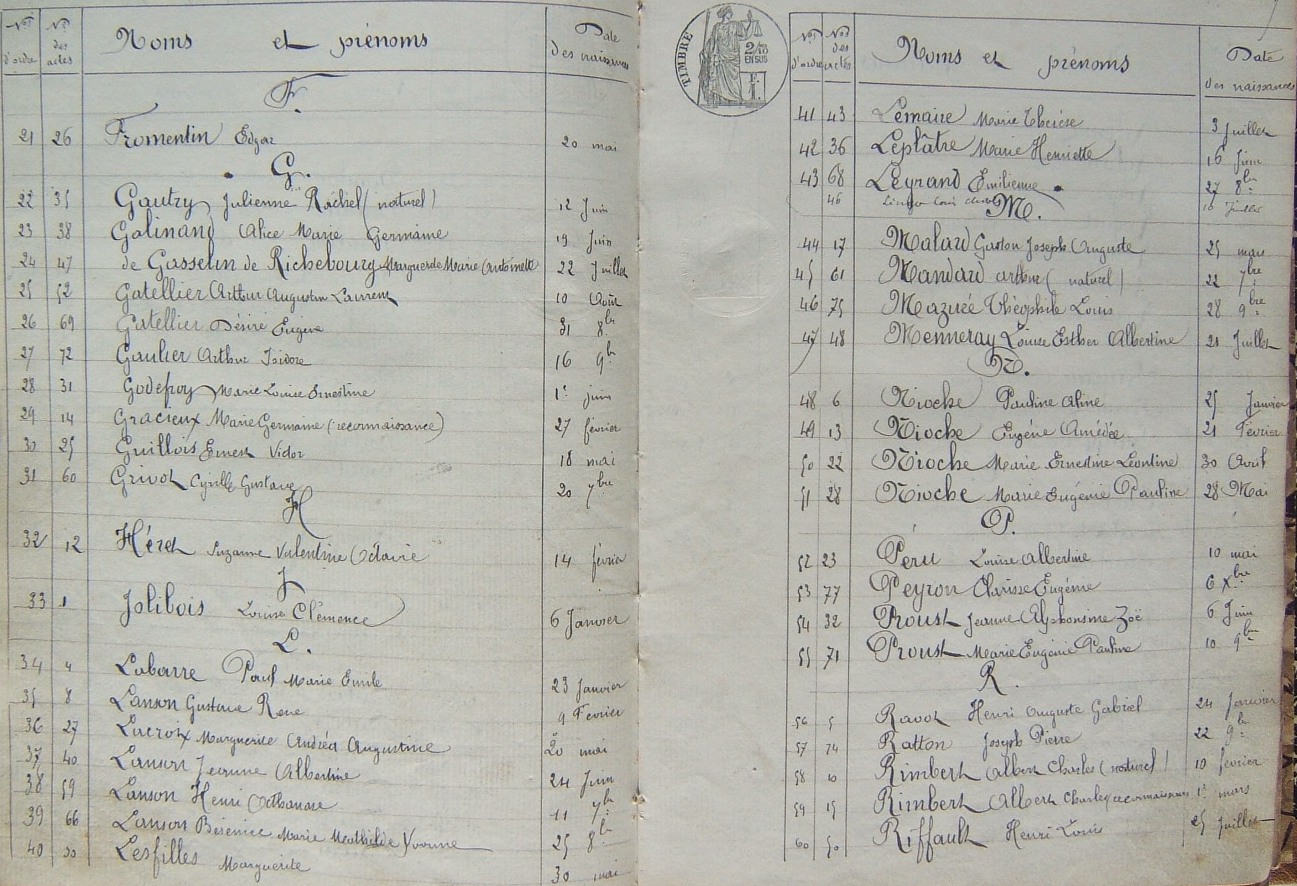 Nos d'ordre Nos des actes Noms et prénoms Date des naissances
F.
21 26 Fromentin Edgar 20 mai
G.
22 35 Gautry Julienne Rachel (naturel) 12 Juin
23 38 Galinand Alice Marie Germaine 19 Juin
24 47 de Gasselin de Richebourg Marguerite Marie Antoinette 22 Juillet
25 52 Gatellier Arthur Augustin Laurent 10 Août
26 69 Gatellier Désiré Eugène 31 8bre
27 72 Gaulier Arthur Isidore 16 9bre
28 31 Godefroy Marie Louise Ernestine 1er juin
29 14 Gracieux Marie Germaine (reconnaissance) 27 février
30 25 Guillois Ernest Victor 18 mai
31 60 Grivot Cyrille Gustave 20 7bre
H
32 12 Héret Suzanne Valentine Octavie 14 février
J
33 1 Jolibois Louise Clémence 6 Janvier
L.
34 4 Labarre Paul Marie Emile 23 Janvier
35 8 Lanson Gustave René 9 Février
36 27 Lacroix Marguerite Andréa Augustine 20 mai
37 40 Lanson Jeanne Albertine 24 Juin
38 59 Lanson Henri Athanase 11 7bre
39 66 Lanson Bérénice Marie Mathilde Yvonne 25 8bre
40 30 Lesfilles Marguerite 30 mai
TIMBRE
2/10 EN SUS
F. 1.
Nos d'ordre Nos des actes Noms et prénoms Date des naissances
41 43 Lemaire Marie Thérèse 3 Juillet
42 36 Leplâtre Marie Henriette 16 Juin
43 68 Legrand Emilienne 27 8bre
46 Louis 10 Juillet
M.
44 17 Malard Gaston Joseph Auguste 25 mars
45 61 Mandard arthur (naturel) 22 7bre
46 75 Mazurée Théophile Louis 28 9bre
47 48 Menneray Louise Esther Albertine 21 Juillet
N.
48 6 Nioche Pauline Aline 25 Janvier
49 13 Nioche Eugène Amédée 21 Février
50 22 Nioche Marie Ernestine Léontine 30 Avril
51 28 Nioche Marie Eugénie Pauline 28 Mai
P.
52 23 Péru Louise Albertine 10 mai
53 77 Peyron Clarisse Eugénie 6 Xbre
54 32 Proust Jeanne Alphonsine Zoë 6 Juin
55 71 Proust Marie Eugénie Pauline 10 9bre
R.
56 5 Ravot Henri Auguste Gabriel 24 Janvier
57 74 Ratton Joseph Pierre 22 9bre
58 10 Rimbert Albert Charles (naturel) 10 février
59 15 Rimbert Albert Charles (reconnaissance 1er mars
60 50 Riffault Henri Louis 25 Juillet